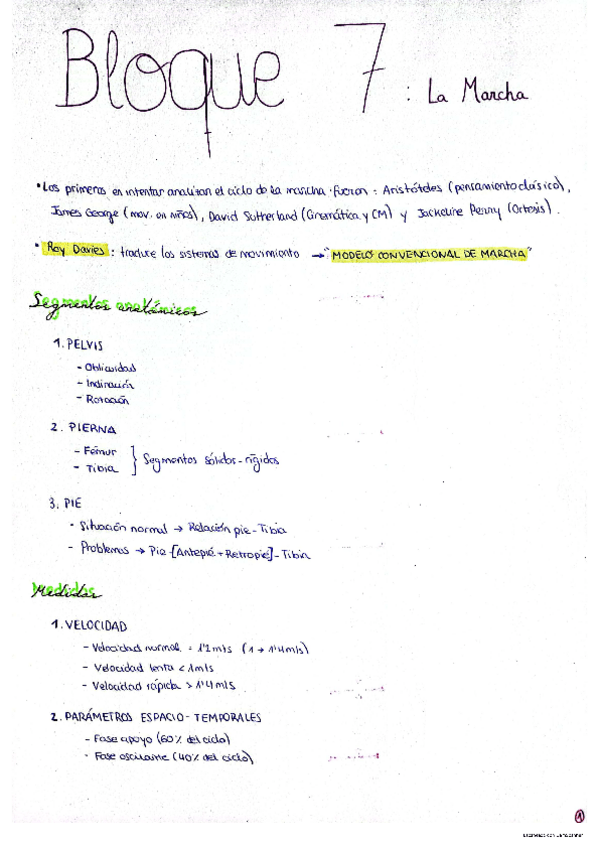 Bloque 7 : La Marcha
• Los primeros en intentar analizar el ciclo de la marcha fueron : Aristóteles (pensamiento clásico),
James George (mov. en niños), David Sutherland (Cinemática y CM) y Jackeline Perry (Ortesis).
• Roy Davies : traduce los sistemas de movimiento → "MODELO CONVENCIONAL DE MARCHA"
Segmentos anatómicos
1. PELVIS
- Oblicuidad
- Inclinación
- Rotación
2. PIERNA
- Fémur
- Tibia } Segmentos sólidos-rígidos
3. PIE
- Situación normal → Relación pie-Tibia
- Problemas → Pie [Antepié + Retropié] - Tibia
Medidas
1. VELOCIDAD
- Velocidad normal = 1'2m/s (1 → 1'4m/s)
- Velocidad lenta < 1m/s
- Velocidad rápida > 1'4m/s
2. PARÁMETROS ESPACIO-TEMPORALES
- Fase apoyo (60% del ciclo)
- Fase oscilante (40% del ciclo)
1